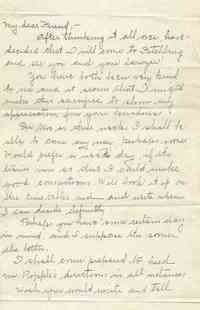 My dear Friend,—
After thinking it all over have
decided that I will come to Fitchburg
and see you and your lawyer.
You have both been very kind
to me and it seems that I might
make this sacrifice to show my
appreciation for your kindness.
For two or three weeks I shall be
able to come any day perhaps
would prefer a week day if the
trains run so that I could make
good connections. Will look it up on
the time table and write when
I can decide definitely.
Perhaps you have some certain day
in mind, and I suppose the sooner
the better.
I shall come prepared to heed
Mr directions in all instances.
Wish you would write and tell